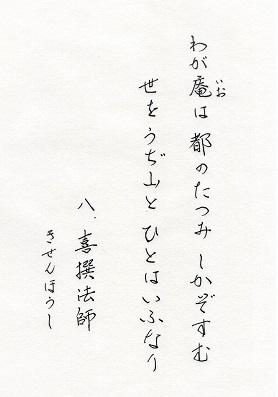 わが庵は都のたつみしかぞすむ
いお
世をうぢ山とひとはいふなり
八.喜撰法師
きせんほうし